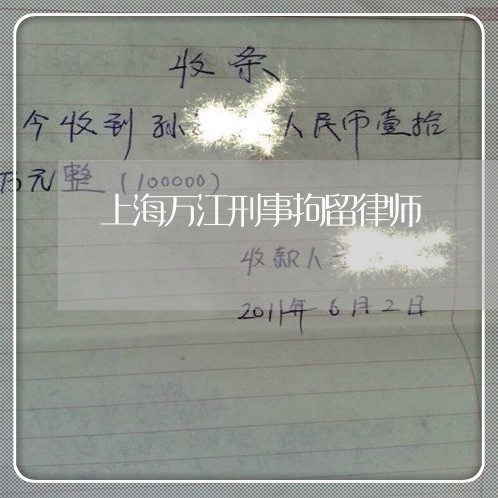 收条
今收到孙人民币壹拾
万元整（100000）
上海万江刑事拘留律师
收款人
2011年6月2日